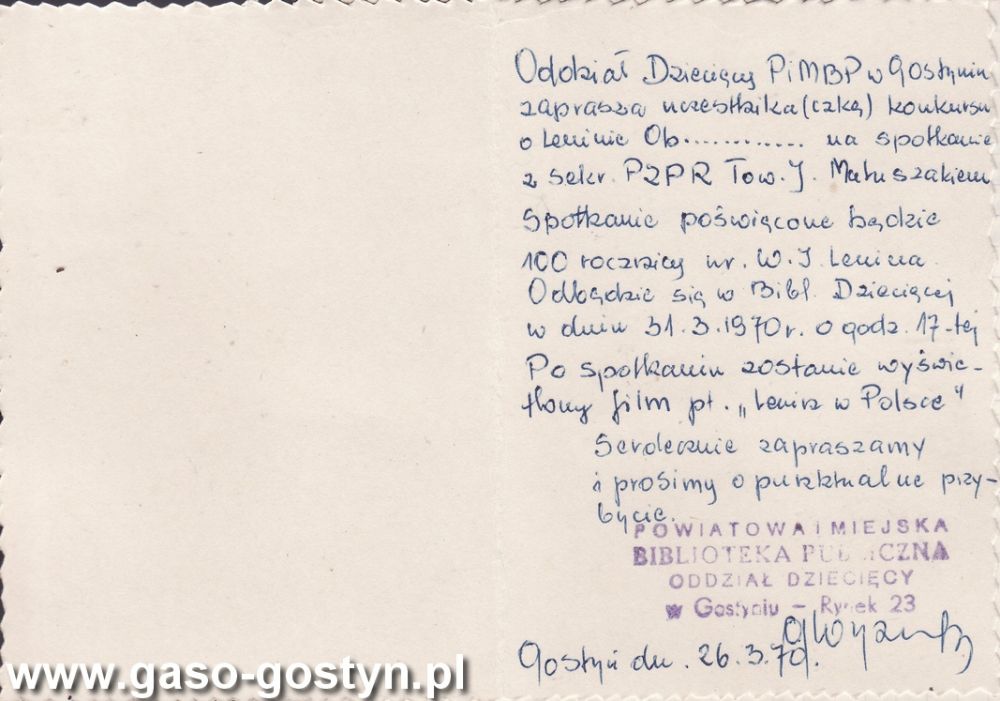 Oddział Dziecięcy PiMBP w Gostyniu
zaprasza uczestnika (czkę) konkursu
o Leninie Ob............. na spotkanie
z sekr. PZPR Tow. J. Matuszakiem
Spotkanie poświęcone będzie
100 rocznicy ur. W. I. Lenina.
Odbędzie się w Bibl. Dziecięcej
w dniu 31.3.1970 r. o godz. 17-tej
Po spotkaniu zostanie wyświe-
tlony film pt. „Lenin w Polsce"
Serdecznie zapraszamy
i prosimy o punktualne przy-
bycie.
POWIATOWA I MIEJSKA
BIBLIOTEKA PUBLICZNA
ODDZIAŁ DZIECIĘCY
w Gostyniu – Rynek 23
Gostyń dn. 26.3.70.
www.gaso-gostyn.pl